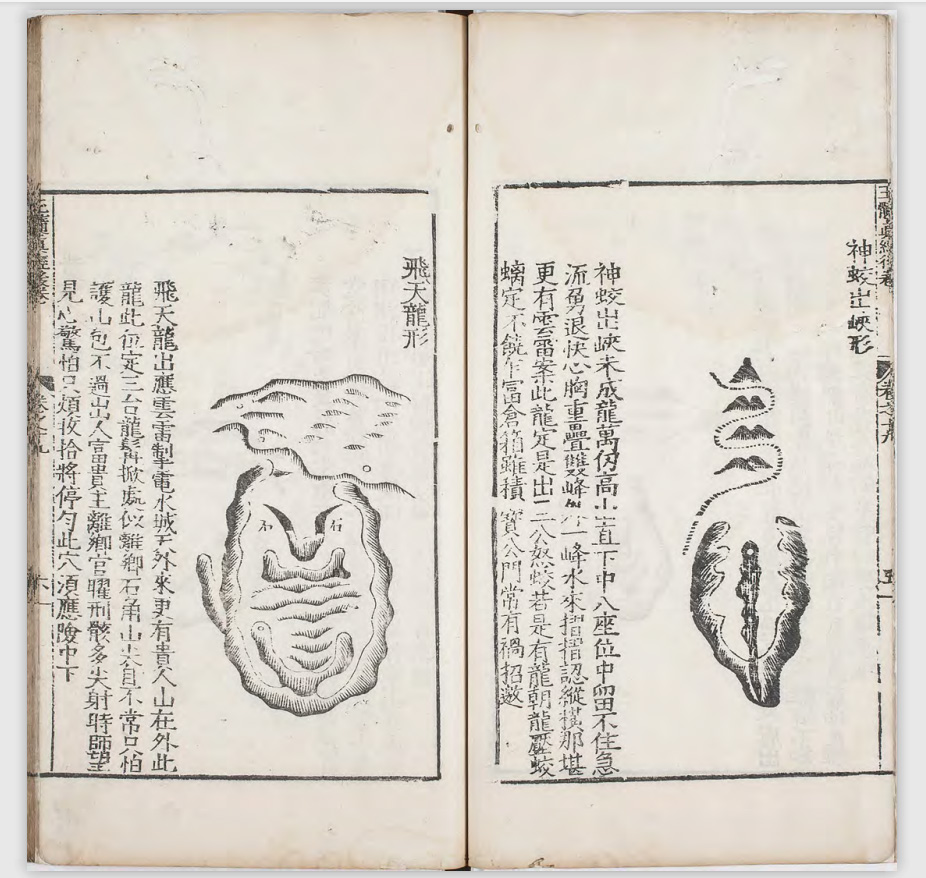 神蛟出峽形
神蛟出峽未成龍萬仞高山直下中八座位中留不住急
流勇退快心胸重疊雙峰外一峰水來摺摺認縱橫那堪
更有雲雷案此龍定是出三公怒蛟若是有龍朝龍壓蛟
螭定不饒乍富倉箱雖積寶公門常有禍招邀
飛天龍形
石
石
飛天龍出應雲雷掣電水城五外來更有貴人山在外此
龍此位定三台龍髯掀處似離鄉石角山尖自不常只怕
護山包不過出人富貴主離鄉官曜刑骸多尖射時師望
見心驚怕只須收拾將停勻此穴須應險中下